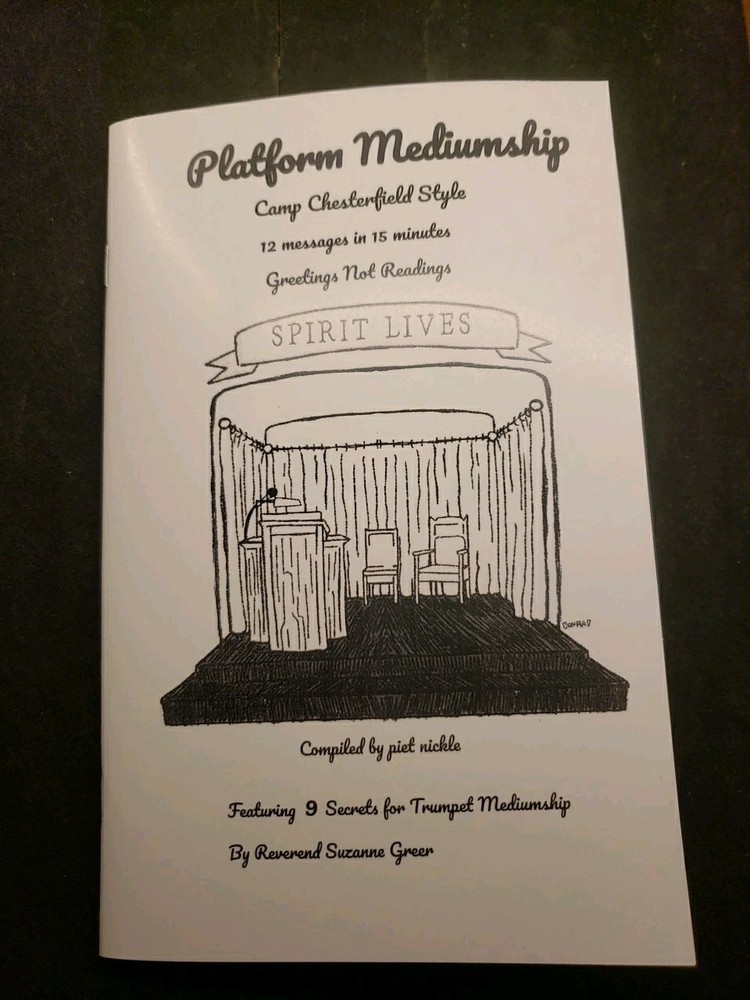 Platform Mediumship
Camp Chesterfield Style
12 messages in 15 minutes
Greetings Not Readings
SPIRIT LIVES
CONRAD
Compiled by piet nickle
Featuring 9 Secrets for Trumpet Mediumship
By Reverend Suzanne Greer